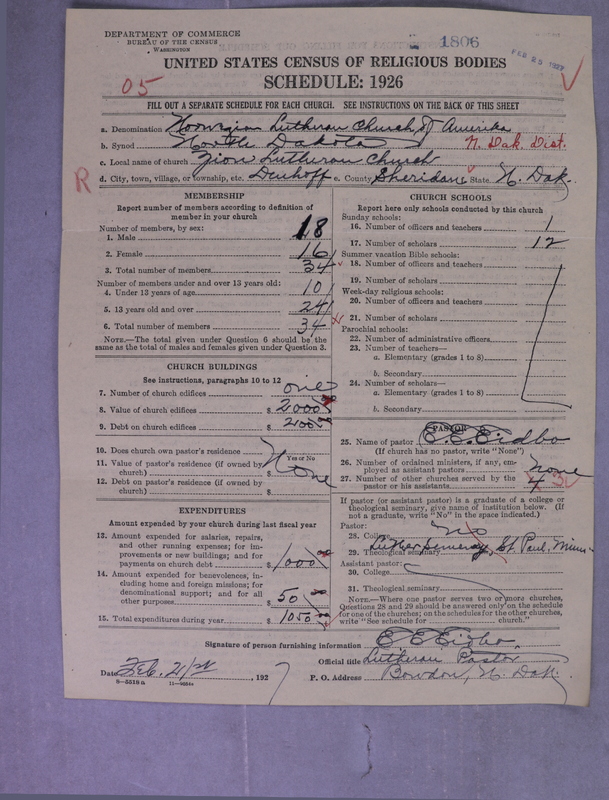 DEPARTMENT OF COMMERCE
BUREAU OF THE CENSUS
WASHINGTON
1806
FEB 25 1927
UNITED STATES CENSUS OF RELIGIOUS BODIES
SCHEDULE: 1926
05
FILL OUT A SEPARATE SCHEDULE FOR EACH CHURCH. SEE INSTRUCTIONS ON THE BACK OF THIS SHEET
a. Denomination Norwegian Lutheran Church of Amerika
b. Synod North Dakota N. Dak. Dist.
c. Local name of church Zion Lutheran Church
d. City, town, village, or township, etc. Denhoff e. County Sheridan State N. Dak.
R
MEMBERSHIP
Report number of members according to definition of member in your church
Number of members, by sex:
1. Male 18
2. Female 16
3. Total number of members 34
Number of members under and over 13 years old:
4. Under 13 years of age 10
5. 13 years old and over 24
6. Total number of members 34
NOTE.—The total given under Question 6 should be the same as the total of males and females given under Question 3.
CHURCH BUILDINGS
See instructions, paragraphs 10 to 12
7. Number of church edifices one
8. Value of church edifices $ 2000.00
9. Debt on church edifices $ 200.00
10. Does church own pastor's residence
Yes or No
11. Value of pastor's residence (if owned by church) $ None
12. Debt on pastor's residence (if owned by church) $
EXPENDITURES
Amount expended by your church during last fiscal year
13. Amount expended for salaries, repairs, and other running expenses; for improvements or new buildings; and for payments on church debt $ 1000.00
14. Amount expended for benevolences, including home and foreign missions; for denominational support; and for all other purposes $ 50.00
15. Total expenditures during year $ 1050.00
CHURCH SCHOOLS
Report here only schools conducted by this church
Sunday schools:
16. Number of officers and teachers 1
17. Number of scholars 12
Summer vacation Bible schools:
18. Number of officers and teachers
19. Number of scholars
Week-day religious schools:
20. Number of officers and teachers
21. Number of scholars
Parochial schools:
22. Number of administrative officers
23. Number of teachers—
a. Elementary (grades 1 to 8)
b. Secondary
24. Number of scholars—
a. Elementary (grades 1 to 8)
b. Secondary
PASTOR
25. Name of pastor E. E. Eidbo
(If church has no pastor, write "None")
26. Number of ordained ministers, if any, employed as assistant pastors none
27. Number of other churches served by the pastor or his assistants 4
If pastor (or assistant pastor) is a graduate of a college or theological seminary, give name of institution below. (If not a graduate, write "No" in the space indicated.)
Pastor:
28. College no
29. Theological seminary Luther Seminary, St. Paul, Minn
Assistant pastor:
30. College
31. Theological seminary
NOTE.—Where one pastor serves two or more churches, Questions 28 and 29 should be answered only on the schedule for one of the churches; on the schedules for the other churches, write "See schedule for church."
Signature of person furnishing information E E Eidbo
Official title Lutheran Pastor
Date Feb. 21st, 1927
P. O. Address Bowdon, N. Dak.
8—5518a 11—9604a